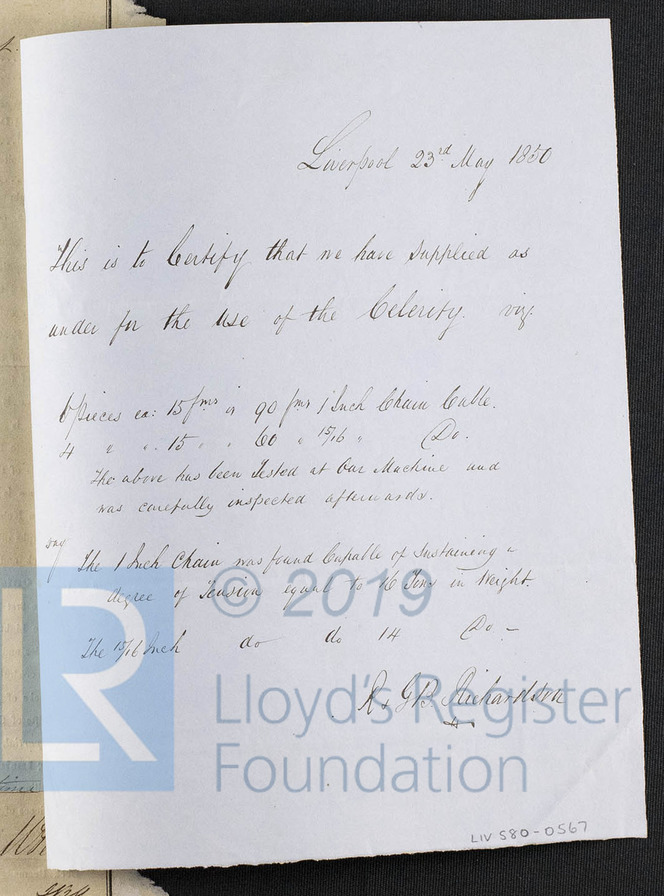 Liverpool 23rd May 1850
This is to Certify that we have supplied as
under for the use of the Celerity. viz.
6 Pieces ea: 15 fms is 90 fms 1 Inch Chain Cable.
4 " " 15 " " 60 " 15/16 " Do.
The above has been Tested at Our Machine and
was carefully inspected afterwards.
The 1 Inch Chain was found Capable of Sustaining a
degree of Tension equal to 16 Tons in Weight.
The 15/16 Inch do do 14 Do -
R & G B. Richardson
© 2019
LR
Lloyd's Register
Foundation
LIV 580-0567